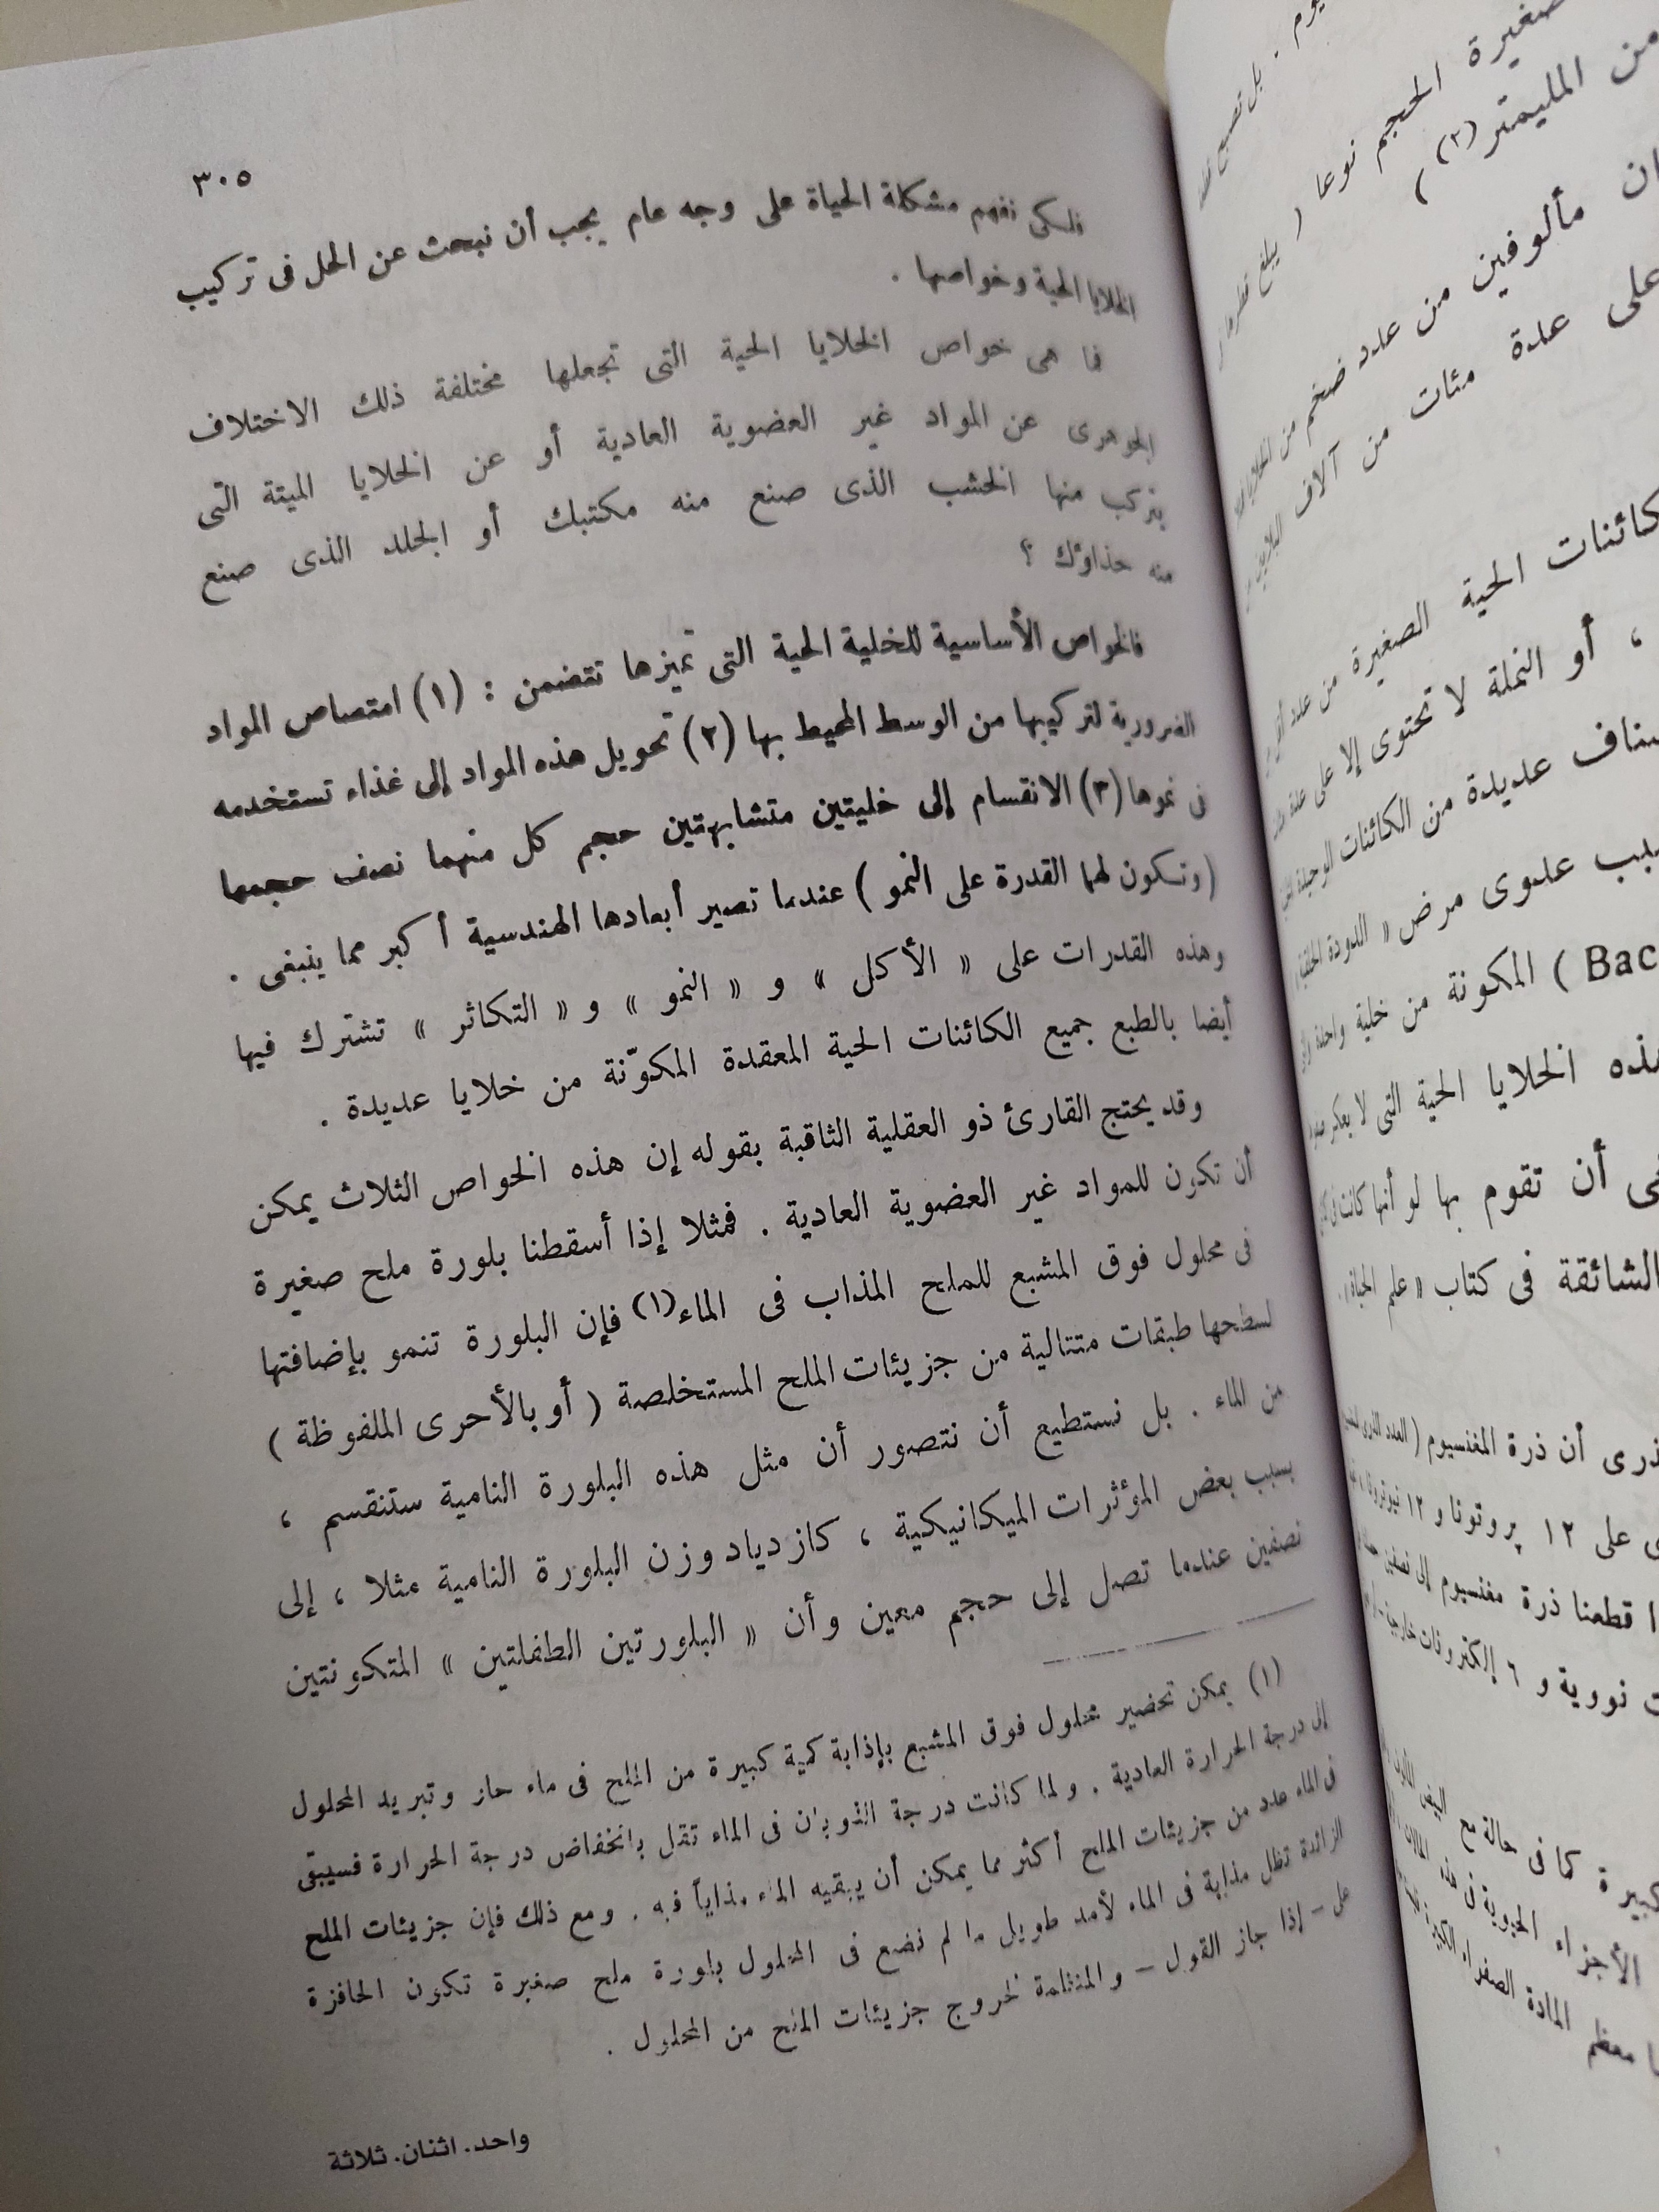 صغيرة الحجم نوعا ( يبلغ قطرها
من المليمتر (٢) )
مألوفين من عدد ضخم من الخلايا
على عدة مئات من آلاف البلايين
الكائنات الحية الصغيرة من عدد
، أو النملة لا تحتوى إلا على عدة
عديدة من الكائنات الوحيدة
عدوى مرض « الدودة
Bac ) المكونة من خلية واحدة
هذه الخلايا الحية التى لا يمكن
أن تقوم بها لو أنها كانت فى
الشائقة فى كتاب « علم الحياة
أن ذرة المغنسيوم ( العدد الذرى
على ١٢ پروتونا و ١٢ نيوترونا
قطعنا ذرة مغنسيوم إلى نصفين
نووية و ٦ إلكترونات خارجية
كبيرة كما فى حالة مح البيض
الأجزاء الحيوية فى هذه
معظم المادة الصفراء
٣٠٥
فلكى نفهم مشكلة الحياة على وجه عام يجب أن نبحث عن الحل فى تركيب
الخلايا الحية وخواصها .
فما هى خواص الخلايا الحية التى تجعلها مختلفة ذلك الاختلاف
الجوهرى عن المواد غير العضوية العادية أو عن الخلايا الميتة التى
يتركب منها الخشب الذى صنع منه مكتبك أو الجلد الذى صنع
منه حذاؤك ؟
فالخواص الأساسية للخلية الحية التى تميزها تتضمن : (١) امتصاص المواد
الضرورية لتركيبها من الوسط المحيط بها (٢) تحويل هذه المواد إلى غذاء تستخدمه
فى نموها (٣) الانقسام إلى خليتين متشابهتين حجم كل منهما نصف حجمها
(وتكون لهما القدرة على النمو ) عندما تصير أبعادها الهندسية أكبر مما ينبغى .
وهذه القدرات على « الأكل » و « النمو » و « التكاثر » تشترك فيها
أيضا بالطبع جميع الكائنات الحية المعقدة المكوّنة من خلايا عديدة .
وقد يحتج القارئ ذو العقلية الثاقبة بقوله إن هذه الخواص الثلاث يمكن
أن تكون للمواد غير العضوية العادية . فمثلا إذا أسقطنا بلورة ملح صغيرة
فى محلول فوق المشبع للملح المذاب فى الماء(١) فإن البلورة تنمو بإضافتها
لسطحها طبقات متتالية من جزيئات الملح المستخلصة ( أو بالأحرى الملفوظة )
من الماء . بل نستطيع أن نتصور أن مثل هذه البلورة النامية ستنقسم ،
بسبب بعض المؤثرات الميكانيكية ، كازدياد وزن البلورة النامية مثلا ، إلى
نصفين عندما تصل إلى حجم معين وأن « البلورتين الطفلتين » المتكونتين
(١) يمكن تحضير محلول فوق المشبع بإذابة كمية كبيرة من الملح فى ماء حار وتبريد المحلول
إلى درجة الحرارة العادية . ولما كانت درجة الذوبان فى الماء تقل بانخفاض درجة الحرارة فسيبقى
فى الماء عدد من جزيئات الملح أكثر مما يمكن أن يبقيه الماء مذاباً فيه . ومع ذلك فإن جزيئات الملح
الزائدة تظل مذابة فى الماء لأمد طويل ما لم نضع فى المحلول بلورة ملح صغيرة تكون الحافزة
على – إذا جاز القول – والمنظمة لخروج جزيئات الملح من المحلول .
واحد. اثنان. ثلاثة